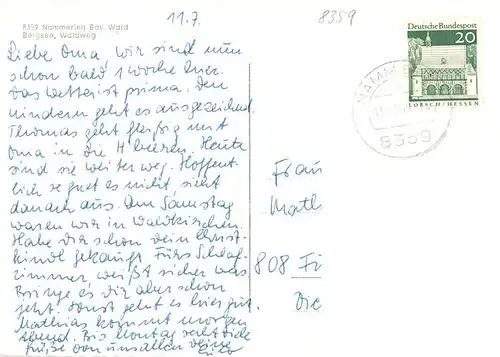 8359 Nammering Bay. Wald
Bergsee, Waldweg
11.7.
8359
Deutsche Bundespost
20
LORSCH/HESSEN
NAMM
8359
Liebe Oma, wir sind nun
schon bald 1 Woche hier.
Das Wetter ist prima. Den
Kindern geht es ausgezeichnet.
Thomas geht fleißig mit
Oma in die H beeren. Heute
sind sie weiter weg. Hoffent-
lich regnet es nicht, sieht
danach aus. Am Samstag
waren wir in Waldkirchen.
Habe dir schon dein Christ-
kindl gekauft. Fürs Schlaf-
zimmer, weißt sicher was.
Bringe es dir aber schon
jetzt. Sonst geht es hier gut.
Mathias kommt morgen
abend. Bis Montag
Grüße von uns allen deine
Frau
Math
808 Fü
Die